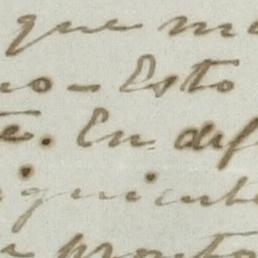 que
no - Esto
te. En dif
iguiente
pronto